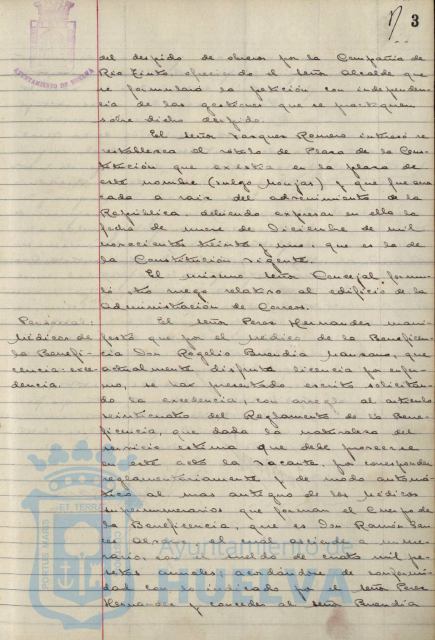 3
AYUNTAMIENTO DE HUELVA
del despido de obreros por la Compañía de
Rio Tinto, ofreciendo el señor Alcalde que
se formulará la petición con independen-
cia de las gestiones que se practiquen
sobre dicho despido.
El señor Vazquez Romero interesó se
restablezca el rótulo de Plaza de la Cons-
titución que existía en la plaza de
este nombre (vulgo Monjas) y que fue arran-
cada a raiz del advenimiento de la
República, debiendo expresar en ella la
fecha de nueve de Diciembre de mil
novecientos treinta y uno, que es la de
la Constitución vigente.
El mismo señor Concejal formu-
ló otro ruego relativo al edificio de la
Administración de Correos.
Personal:
Médicos de
la Benefi-
cencia: exce-
dencia.
El señor Perez Hernandez mani-
festó que por el Médico de la Beneficen-
cia Don Rogelio Buendia Manzano, que
actualmente disfruta licencia por enfer-
mo, se har presentado escrito solicitan-
do la excedencia, con arreglo al artículo
veinticuatro del Reglamento de la Bene-
ficencia, que dada la naturaleza del
servicio estima que debe proveerse
en este acto la vacante, por corresponder
reglamentariamente y de modo automá-
tico al mas antiguo de los Médicos
supernumerarios que forman el Cuerpo de
la Beneficencia, que es Don Ramón
el cual asciende a nume-
rario, con el sueldo de cuatro mil pe-
setas anuales; acordándose de conformi-
dad con lo indicado por el señor Perez
Hernandez y conceder al señor Buendia
Ayuntamiento de
HUELVA
PORTUS MARIS ET TERRAE